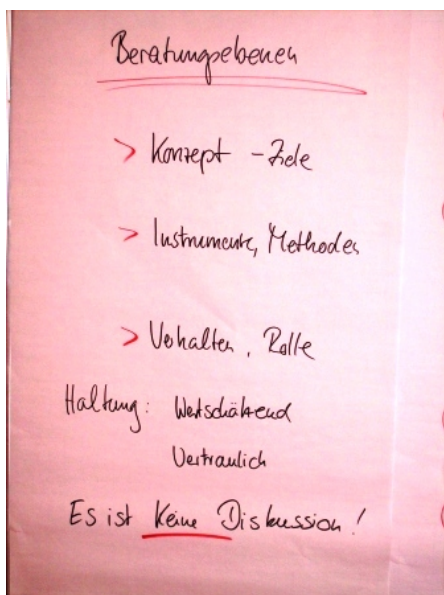 Beratungsebenen
> Konzept - Ziele
> Instrumente, Methoden
> Verhalten, Rolle
Haltung: Wertschätzend
Vertraulich
Es ist Keine Diskussion!